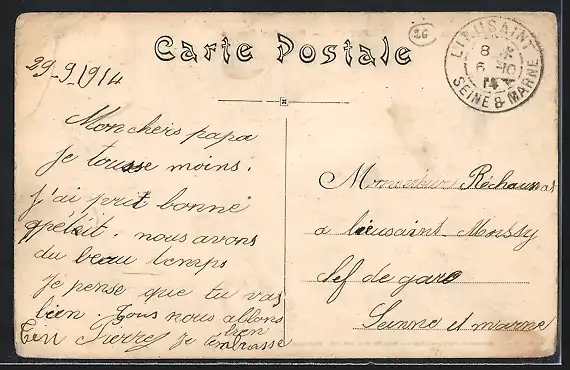 Carte Postale
26
LIEUSAINT
8
6 -10
14
SEINE & MARNE
29-9.1914
Mon chers papa
je tousse moins.
j'ai prit bonne
apétit. nous avons
du beau temps
Je pense que tu vas
bien. Tous nous allons
bien
Pierre je embrasse
Monsieur
a lieusaint Moissy
chef de gare
Seinne et marne